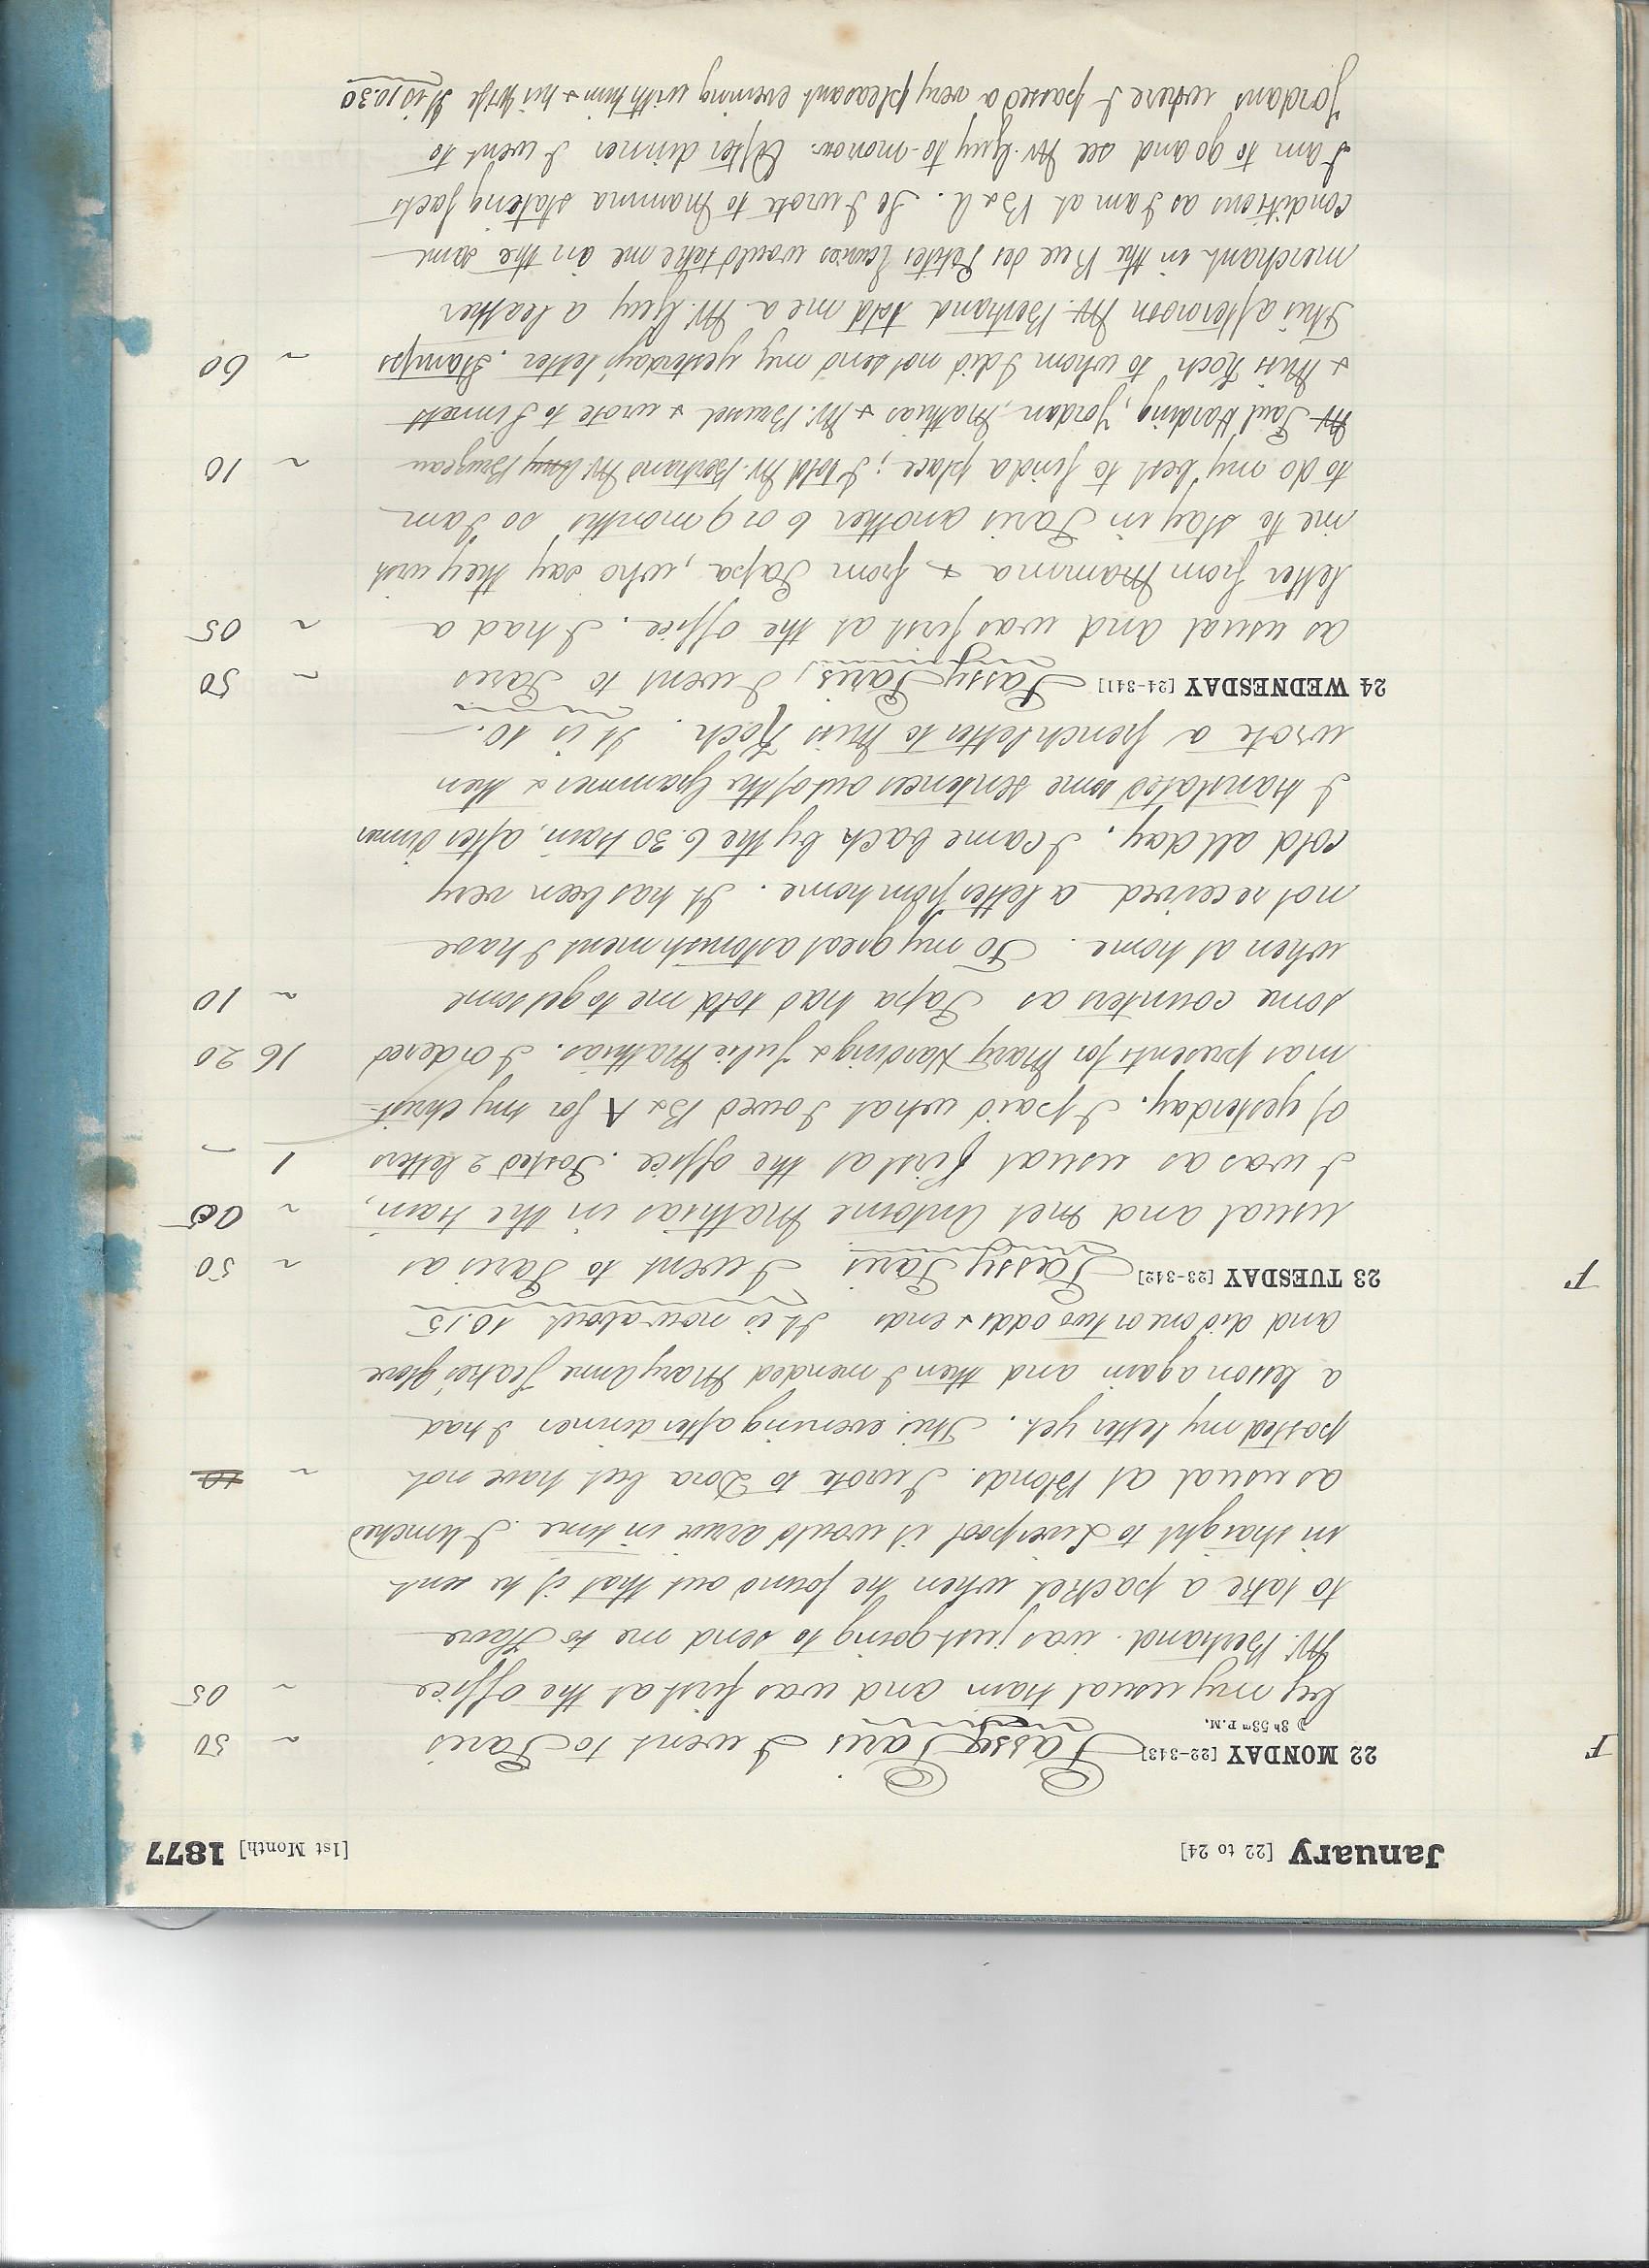 January [22 to 24] [1st Month] 1877
F 22 MONDAY [22-343] Passy Paris I went to Paris ~ 50
☽ 8h 53m P.M.
by my usual train and was first at the office ~ 05
Mr. Bertrand was just going to send me to Havre
to take a packet when he found out that if he sent
in straight to Liverpool it would arrive in time. I lunched
as usual at Blonds. I wrote to Dora but have not ~ 10
posted my letter yet. This evening after dinner I had
a lesson again and then I mended Mary Anne glove
and did one or two odds & ends It is now about 10.15
F 23 TUESDAY [23-342] Passy Paris I went to Paris as ~ 50
usual and met Antoine Mathias in the train, ~ 05
I was as usual first at the office. Posted 2 letters 1 ~
of yesterday. I paid what I owed B & A for my christ-
mas presents for Mary Harding & Julie Mathias. I ordered 16 20
some counters as Papa had told me to get some ~ 10
when at home. To my great astonishment I have
not received a letter from home. It has been very
cold all day. I came back by the 6.30 train, after dinner
I translated some sentences out of the Grammer & then
wrote a french letter to Miss Koch. It is 10.
24 WEDNESDAY [24-341] Passy Paris, I went to Paris ~ 50
as usual and was first at the office. I had a ~ 05
letter from Mamma & from Papa, who say they wish
me to stay in Paris another 6 or 9 months so I am
to do my best to find a place; I told Mr. Bertrand Mr Brugeau ~ 10
Mr Paul Harding, Jordan, Mathias & Mr. Brunel & wrote to
& Miss Koch to whom I did not send my yesterday's letter. Stamps ~ 60
This afternoon Mr Bertrand told me a Mr. Guy a leather
merchant in the Rue des Petites Ecuries would take me on the same
conditions as I am at B & A. So I wrote to Mamma stating facts
I am to go and see Mr. Guy to-morrow. After dinner I went to
Jordans where I passed a very pleasant evening with him & his wife It is 10.30